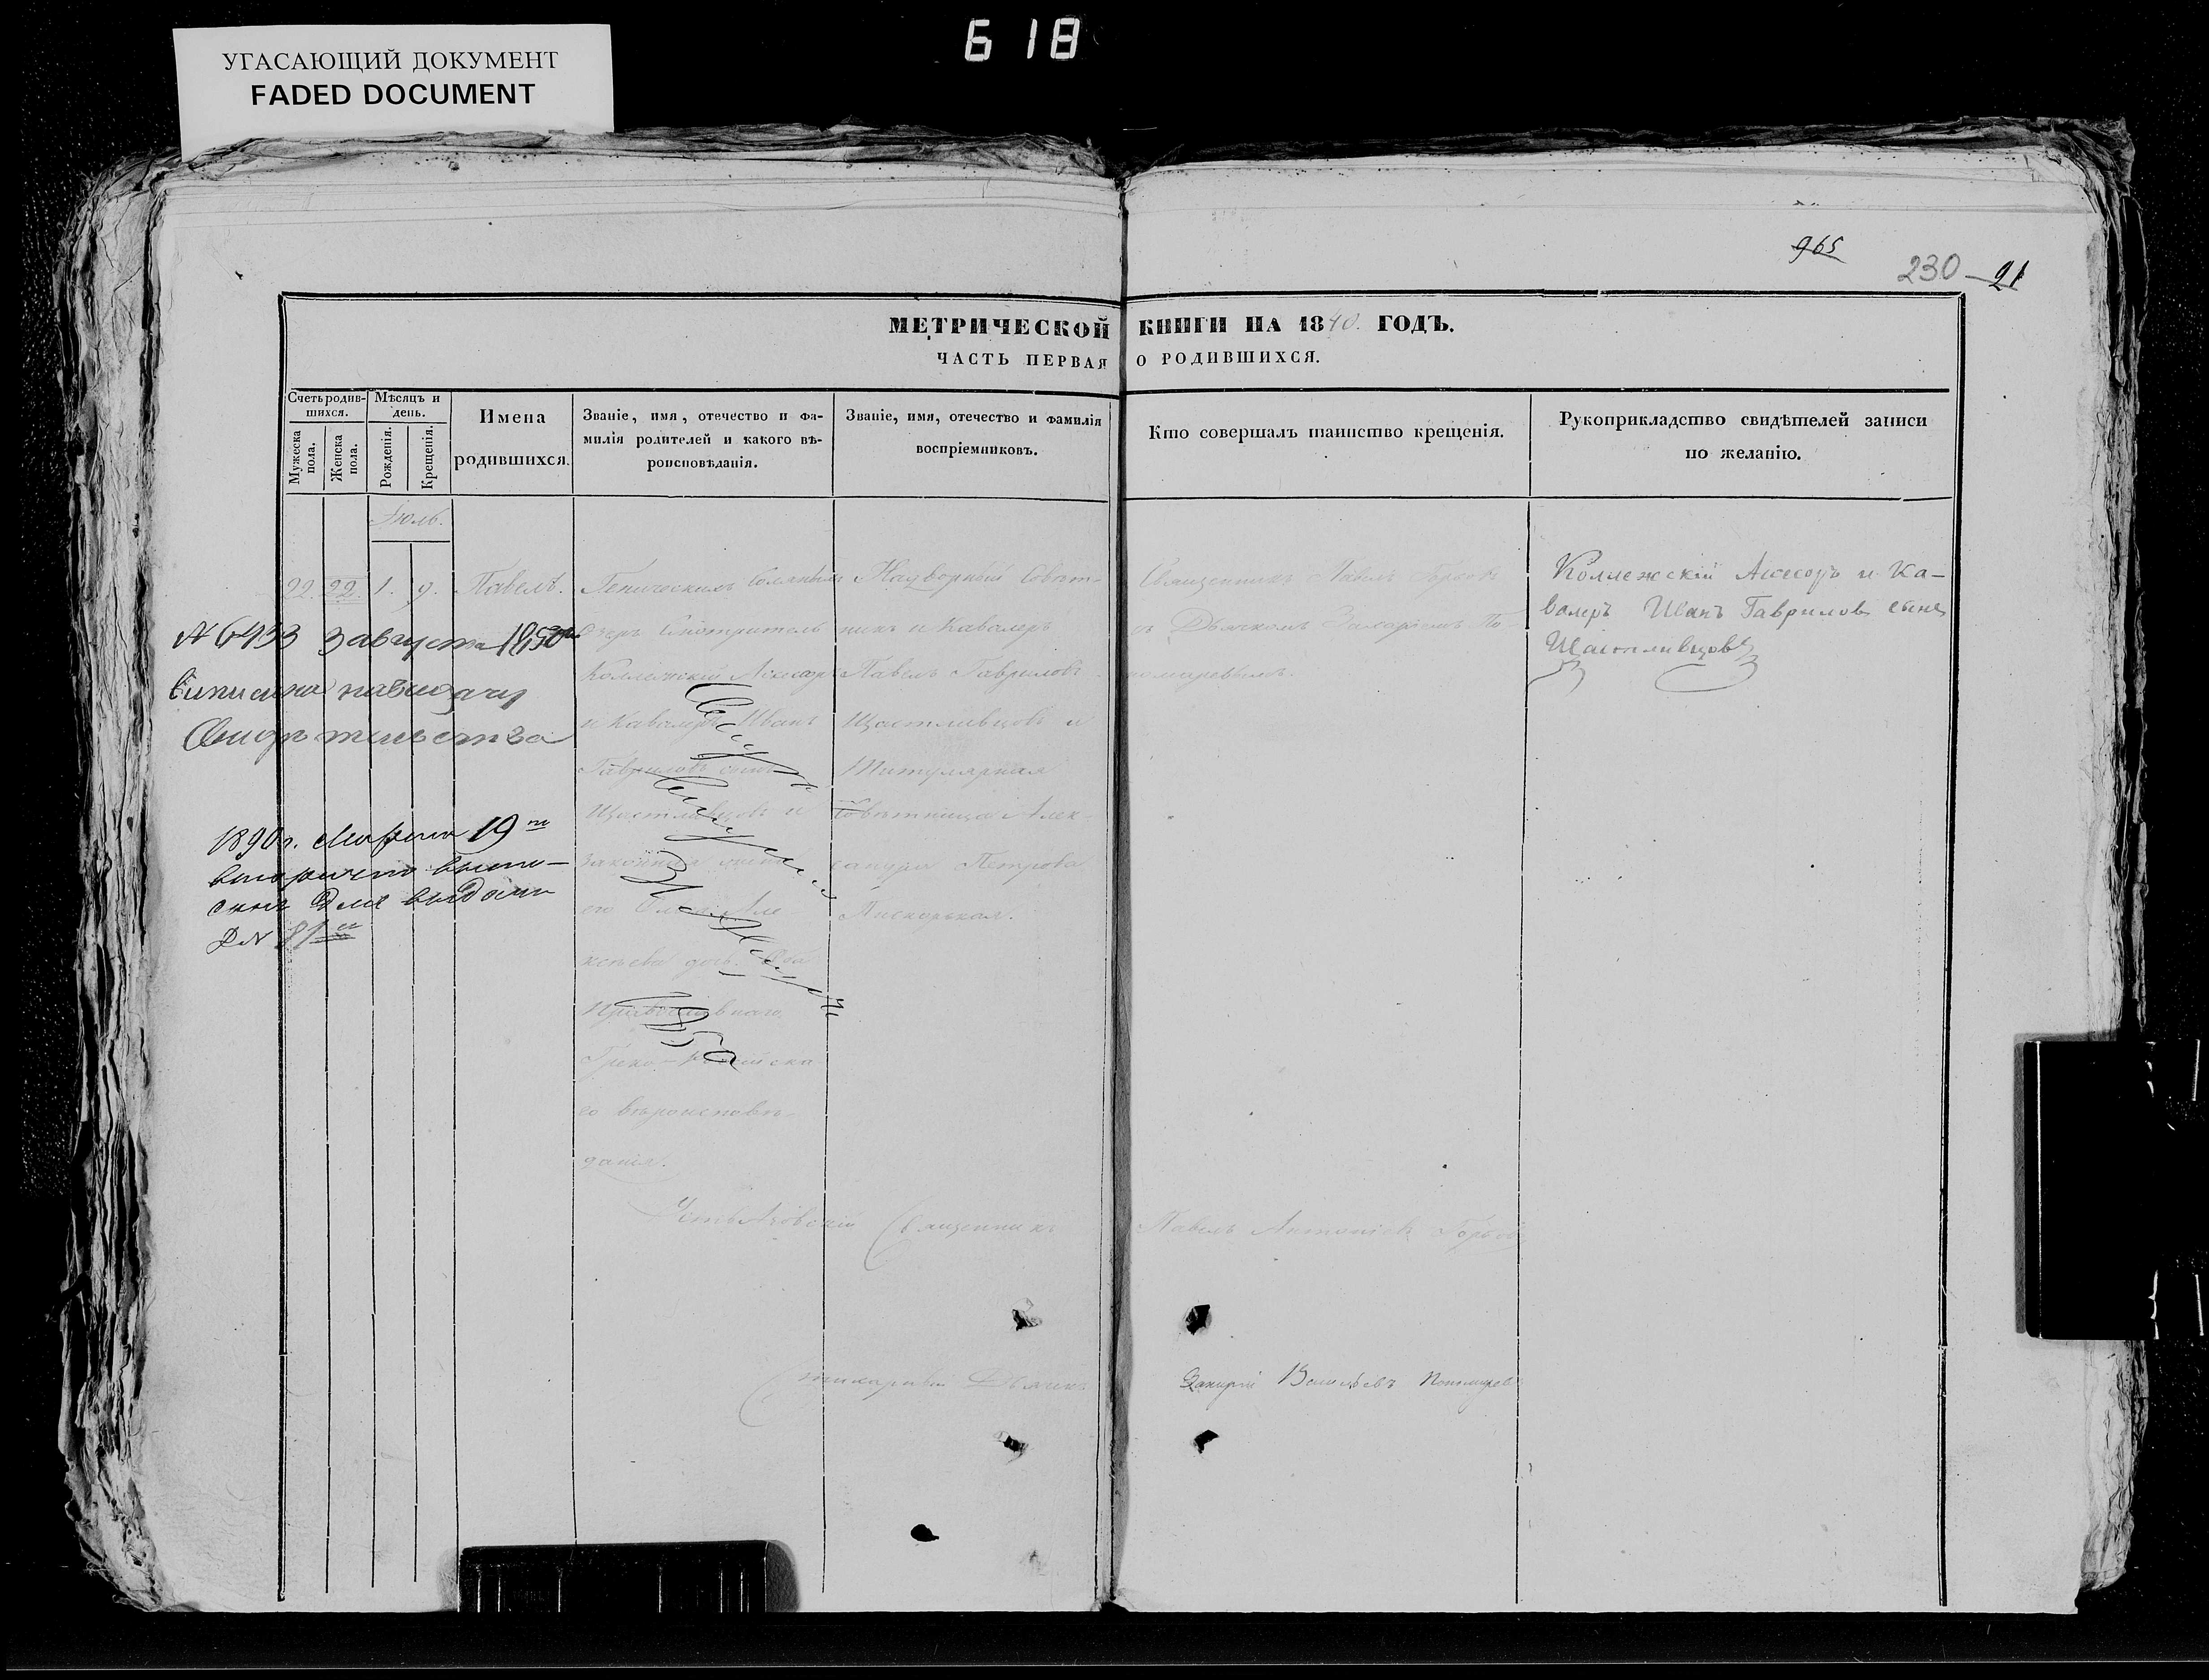 УГАСАЮЩИЙ ДОКУМЕНТ
FADED DOCUMENT
618
965
230 — 91
МЕТРИЧЕСКОЙ КНИГИ НА 1840. ГОДЪ.
ЧАСТЬ ПЕРВАЯ О РОДИВШИХСЯ.
Счетъ родив-
шихся.
Мужеска
пола.
Женска
пола.
Мѣсяцъ и
день.
Рожденія.
Крещенія.
Имена
родившихся.
Званіе, имя, отечество и фа-
милія родителей и какого вѣ-
роисповѣданія.
Званіе, имя, отечество и фамилія
воспріемниковъ.
Кто совершалъ таинство крещенія.
Рукоприкладство свидѣтелей записи
по желанію.
Іюль.
22. 22. 1. 9. Павелъ.
Геническихъ Соляныхъ
Озеръ Смотритель
Коллежскій Асессоръ
и Кавалеръ Иванъ
Гавриловъ сынъ
Щастливцовъ и
законная жена
его
ксѣева дочь. Оба
Православнаго
Греко-Россійска
го вѣроисповѣ-
данія.
Надворный Совѣт-
никъ и Кавалеръ
Павелъ Гавриловъ
Щастливцовъ и
Титулярная
Совѣтница Алек-
сандра Петрова
Священникъ Павелъ
съ Дьячкомъ Захаріемъ По-
номаревымъ.
Коллежскій Асессоръ и Ка-
валеръ Иванъ Гавриловъ сынъ
Щастливцовъ
3 августа 1850
Свидѣтельства
1890 г. Марта 19
вторично выпи-
санъ для выдачи
1850
Священникъ Павелъ
Дьячикъ Захарій Васильевъ Пономаревъ